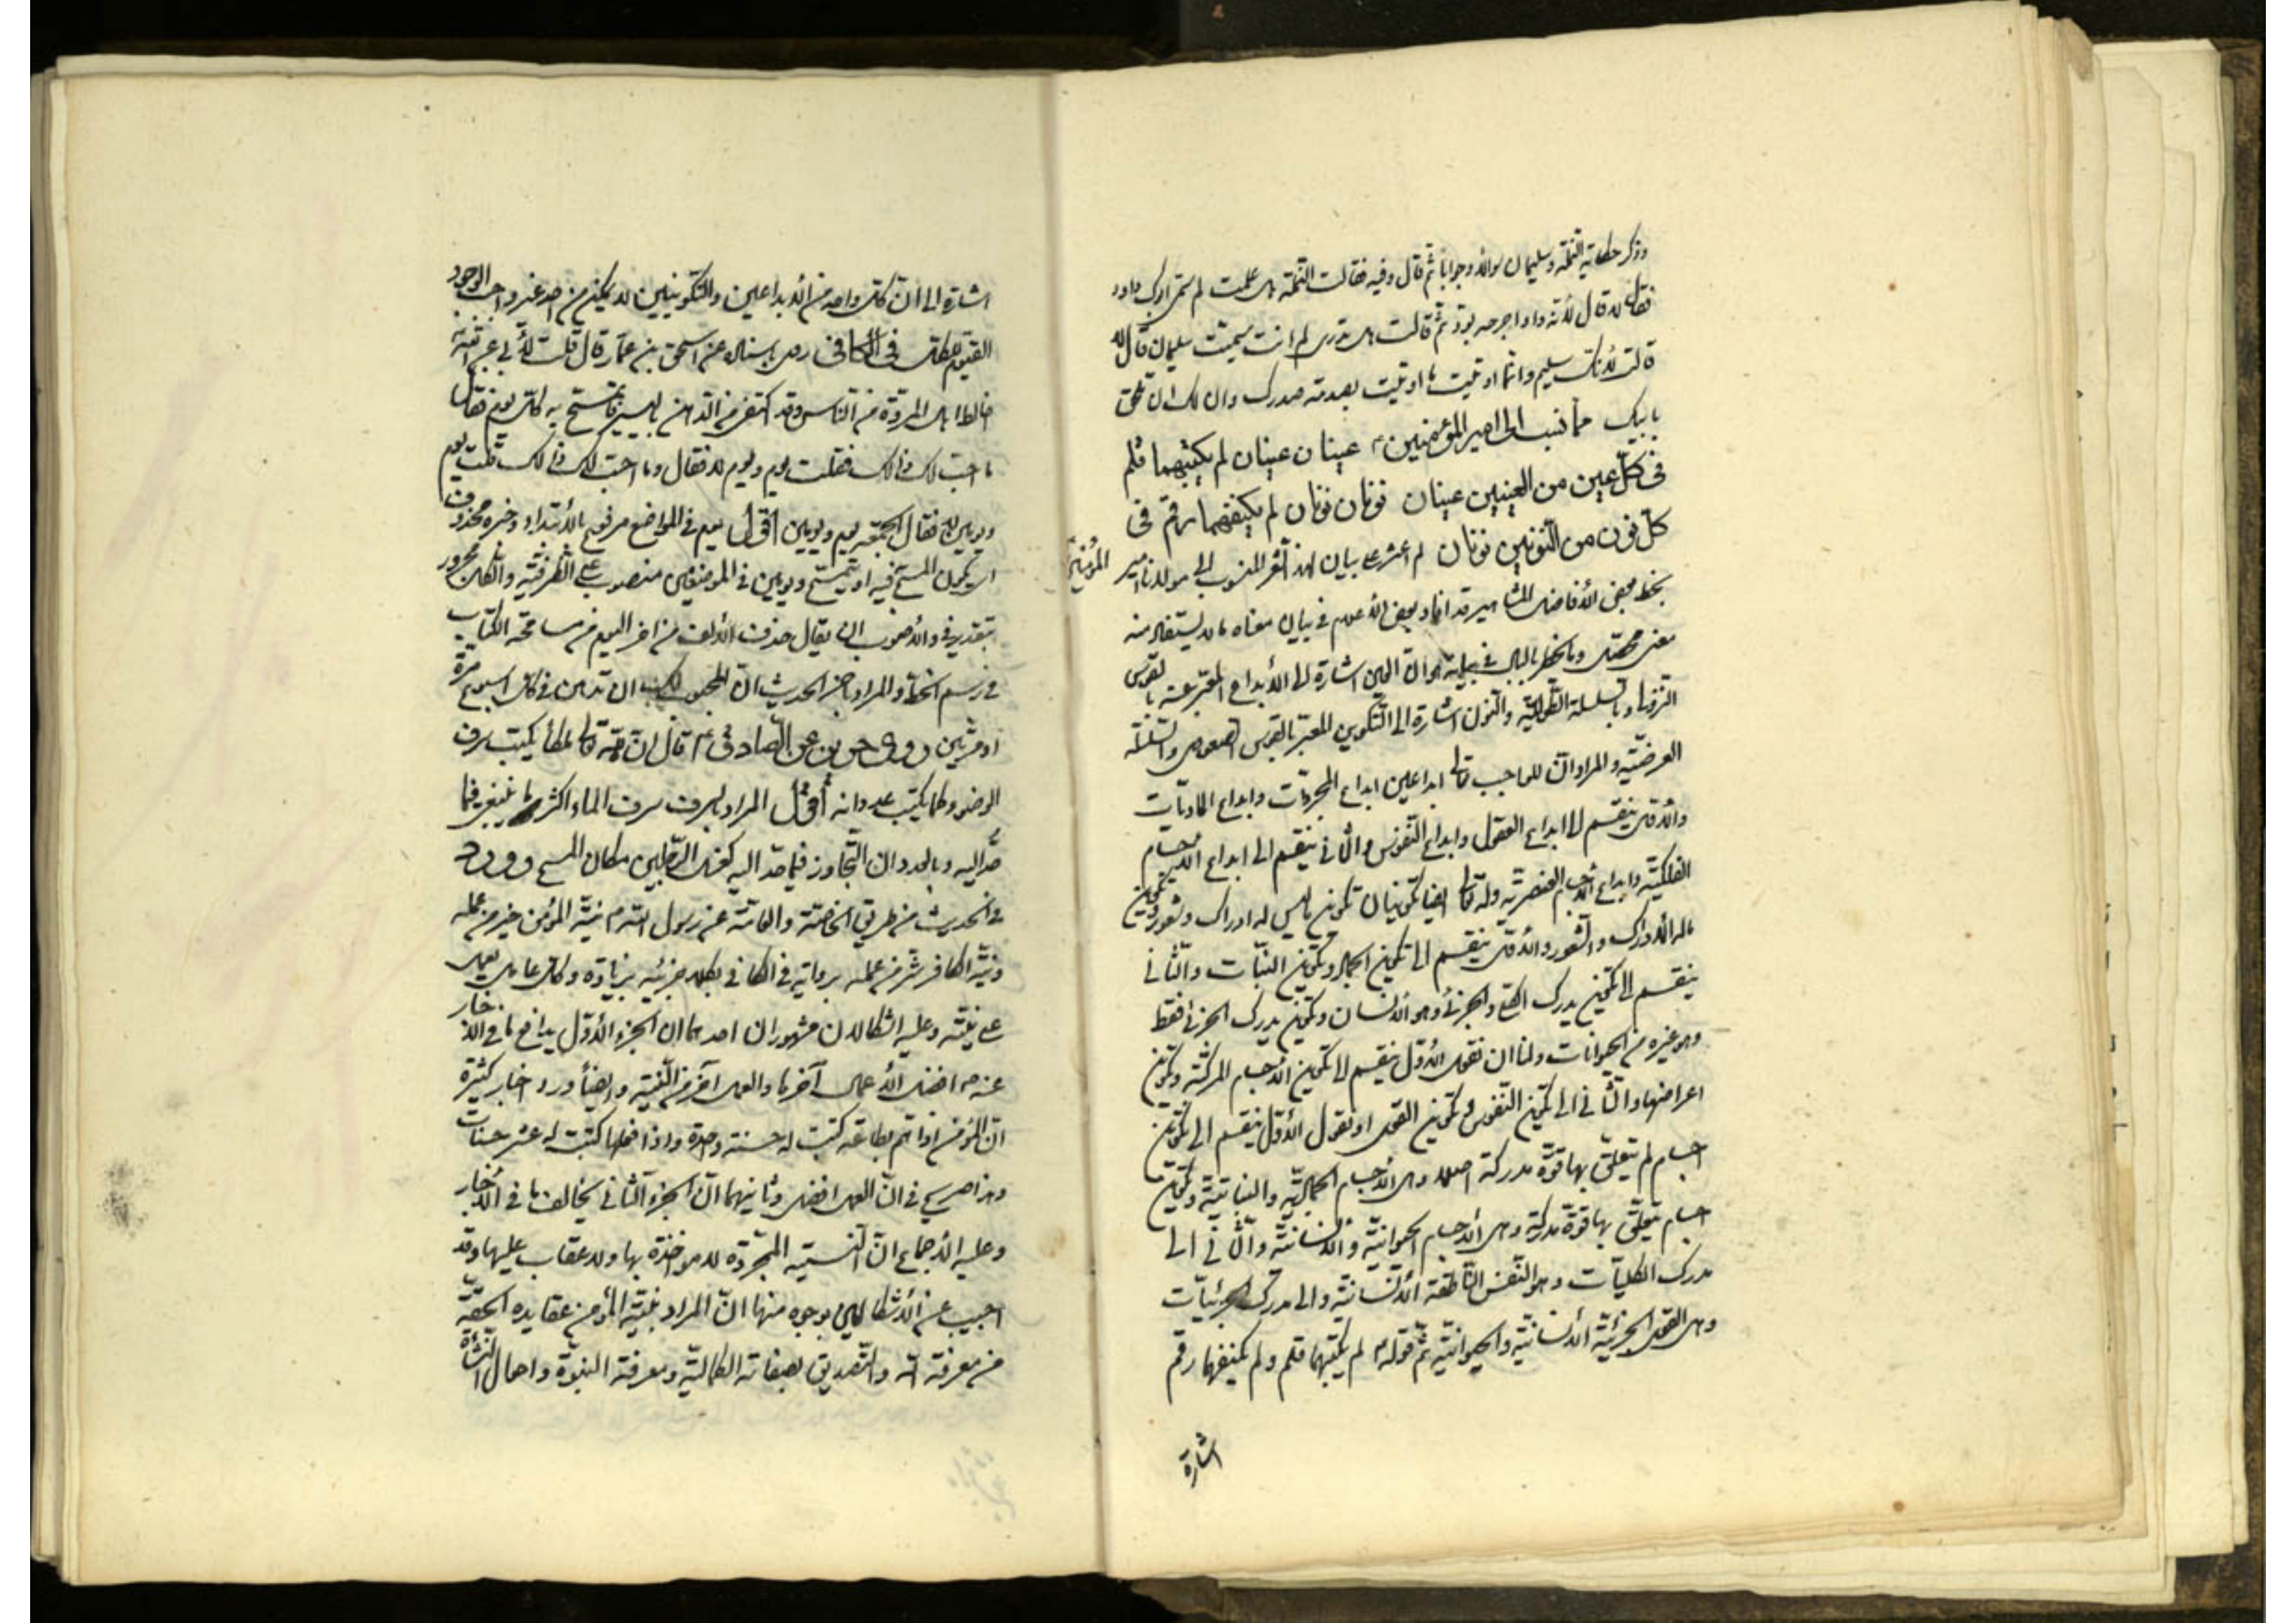 وذكر حكاية النملة وسليمان سؤالا وجوابا ثم قال وفيه فقالت النملة هل علمت لم سمي ابوك داود
فقال لا قال لانه داوا جرحه بود ثم قالت هل تدري لم انت سميت سليمان قال لا
قالت لانك سليم وانما اوتيت ما اوتيت بصدمة صدرك وان لك ان تلحق
بابيك مما نسب الى امير المؤمنين ع عينان عينان لم يكتبهما قلم
في كل عين من العينين عينان نونان نونان لم يكنفهما رقم في
كل نون من النونين نونان لم اعثر على بيان لهذا الشعر المنسوب الى مولانا امير المؤمنين
بخط بعض الافاضل المشاهير قد افاد بعض الاعلام في بيان معناه ما لا يستفاد منه
معنى محصل وما يخطر بالبال في بيانه هو ان العين اشارة الى الابداع المعبر عنه بالقوس
النزولي وبالسلسلة الطولية والنون اشارة الى التكوين المعبر بالقوس الصعودي والسلسلة
العرضية والمراد ان للواجب تعالى ابداعين ابداع المجردات وابداع الماديات
والاول ينقسم الى ابداع العقول وابداع النفوس والثاني ينقسم الى ابداع الاجسام
الفلكية وابداع الاجسام العنصرية وله تعالى ايضا تكوينان تكوين ما ليس له ادراك وشعور وتكوين
ما له الادراك والشعور والاول ينقسم الى تكوين الجماد وتكوين النبات والثاني
ينقسم الى تكوين يدرك الكلي والجزئي وهو الانسان وتكوين يدرك الجزئي فقط
وهو غيره من الحيوانات ولنا ان نقول الاول ينقسم الى تكوين الاجسام المركبة وتكوين
اعراضها والثاني الى تكوين النفوس وتكوين القوى او نقول الاول ينقسم الى تكوين
اجسام لم يتعلق بها قوة مدركة اصلا وهي الاجسام الجمادية والنباتية وتكوين
اجسام يتعلق بها قوة مدركة وهي الاجسام الحيوانية والانسانية والثاني الى
مدرك الكليات وهو النفس الناطقة الانسانية والى مدرك الجزئيات
وهي القوى الجزئية الانسانية والحيوانية ثم قوله لم يكتبهما قلم ولم يكنفهما رقم
اشارة
اشارة الى ان كل واحد من الابداعين والتكوينين لا يمكن من احد غير واجب الوجود
القيوم للكل في الكافي روى باسناده عن اسحق بن عمار قال قلت لابي عبد الله
اخالط اهل المروة من الناس وقد اكتفي من الدهن باليسير فاتمسح به كل يوم فقال
ما احب لك ذلك فقلت يوم ويوم لا فقال وما احب لك ذلك قلت يوم
ويومين لا فقال الجمعة يوم ويومين اقول يوم في المواضع مرفوع بالابتداء وخبره محذوف
اي يكون المسح فيه او تتمسح ويومين في الموضعين منصوب على الظرفية والكل مجرور
بتقدير في والاصوب ان يقال حذف الالف من اخر اليوم من مسامحة الكتاب
في رسم الخط والمراد من الحديث ان المحبوب لك ان تدهن في كل اسبوع مرة
او مرتين روى حريز عن الصادق ع قال ان لله تعالى ملكا يكتب سرف
الوضوء كما يكتب عدوانه اقول المراد بالسرف سرف الماء اكثر ما ينبغي فيما
حد اليه وبالعدوان التجاوز فيما حد اليه كغسل الرجلين مكان المسح ورد
في الحديث من طريق الخاصة والعامة عن رسول الله ص نية المؤمن خير من عمله
ونية الكافر شر من عمله برواية في الكافي بكلا جزئيه بزيادة وكل عامل يعمل
على نيته وعليه اشكالان مشهوران احدهما ان الجزء الاول ينافي ما في الاخبار
عنه ص افضل الاعمال احمزها والعمل احمز من النية وايضا ورد اخبار كثيرة
ان المؤمن اذا هم بطاعة كتبت له حسنة واحدة واذا فعلها كتبت له عشر حسنات
وهذا صريح في ان العمل افضل وثانيهما ان الجزء الثاني يخالف ما في الاخبار
وعليه الاجماع ان النية المجردة لا مؤاخذة بها ولا عقاب عليها وقد
اجيب عن الاشكالين بوجوه منها ان المراد بنية المؤمن عقايده الحقة
من معرفة الله والتصديق بصفاته الكمالية ومعرفة النبوة واحوال النشأة